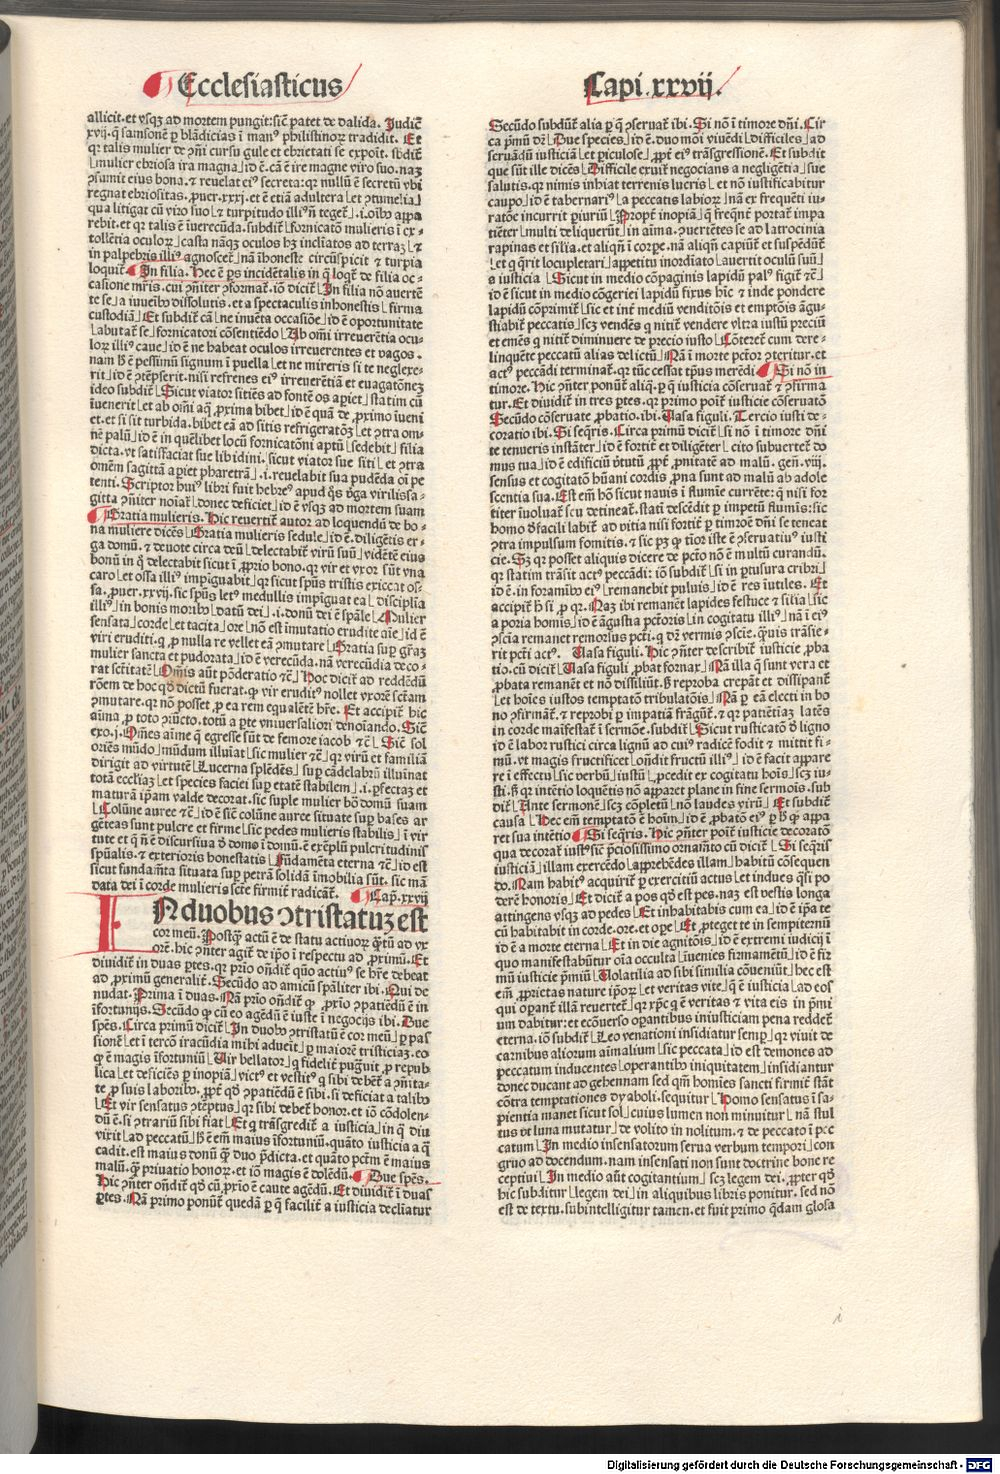 Ecclesiasticus
allicit. et vsqꝫ ad mortem pungit: sic̄ patet de dalida. Judic̄
xvij. q̄ samsonē ꝑ blādicias ī manꝰ philistinoꝝ tradidit. Et
qꝛ talis mulier de ꝯn̄i cursu gule et ebrietati se expoīt. sbdit̄
mulier ebriosa ira magna id ē. cā ē ire magne viro suo. naꝫ
ꝯsumit eius bona. ⁊ reuelat eiꝰ secreta: qꝛ nullū ē secretū vbi
regnat ebriositas. ꝓuer. xxxj. et ē etiā adultera et ꝯtumelia
qua litigat cū viro suo ⁊ turpitudo illiꝰ n̄ teget̄ .i. oīb appa
rebit. et qꝛ talis ē iuerecūda. subdit̄ fornicatō mulieris ī ex⸗
tollētia oculoꝝ casta nāqꝫ oculos hꝫ inclīatos ad terraꝫ ⁊
in palpebris illiꝰ agnoscet̄ nā īhoneste circūspicit ⁊ turpia
loquit̄ In filia. Hec ē ꝑs incidētalis in q̄ loqt̄ de filia oc⸗
casione mr̄is. cui ꝯn̄ter ꝯformat̄. iō dicit̄ In filia nō auertē
te se a iuueīb dissolutis. et a spectaculis inhonestis firma
custodiā Et subdit cā ne inuēta occasiōe id ē oportunitate
abutat̄ se fornicatori cōsentiēdo Ab omī irreuerētia ocu⸗
loꝝ illiꝰ caue id ē ne habeat oculos irreuerentes et vagos.
nam h̄ ē pessimū signum ī puella et ne mireris si te neglexe⸗
rit id ē ꝯtēpserit. nisi refrenes eiꝰ irreuerētiā et euagatōneꝫ
ideo subdit̄ Sicut viator sitiēs ad fontē os apiet statim cū
īuenerit et ab omī aq̄ ꝓxima bibet id ē quā de ꝓximo īueni
et. et si sit turbida. bibet eā ad sitis refrigeratōꝫ et ꝯtra om⸗
nē palū id ē in quēlibet locū fornicatōni aptū sedebit filia
dicta. vt satisfaciat sue libidini. sicut viator sue siti et ꝯtra
omēm sagittā apiet pharetrā .i. reuelabit sua pudēda oī pe
tenti. Scriptor huiꝰ libri fuit hebreꝰ apud q̄s v̄ga virilis sa⸗
gitta ꝯn̄iter noīat̄ donec deficiet id ē vsqꝫ ad mortem suam
Gratia mulieris. Hic reuertit̄ autor ad loquendū de bo⸗
na muliere dicēs Gratia mulieris sedule id ē. diligētis er⸗
ga domū. ⁊ deuote circa deū delectabit̄ virū suū vidēte eius
bonū in q̄ delectabit sicut ī ꝓprio bono. qꝛ vir et vxor sūt vna
caro et ossa illiꝰ impīguabit qꝛ sicut spūs tristis exiccat os⸗
sa. ꝓuer. xxvij. sic spūs letꝰ medullis impīguat ea disciplīa
illiꝰ in bonis morib datū dei .i. donū dei ē spāle Mulier
sensata corde et tacita ore nō est īmutatio erudite aīe id ē
viri eruditi. q̄ ꝓ nulla re vellet eā ꝯmutare Gratia sup gr̄aꝫ
mulier sancta et pudorata id ē verecūda. nā verecūdia deco⸗
rat sctītatē Om̄is aūt pōderatio ⁊c̄ Hoc dicit̄ ad reddēdū
rōem de hoc qd̄ dictū fuerat. q̄ vir eruditꝰ nollet vxorē sctam
ꝯmutare. qꝛ nō posset ꝓ ea rem equalētē hr̄e. Et accipit̄ hic
aīma ꝓ toto ꝯiūcto. totū a ꝑte vniuersaliori denoīando. Sic̄
exo. j. Om̄es aīme q̄ egresse sūt de femore iacob ⁊c̄ Sic̄ sol
oriēs mūdo mūdum illuīat sic mulier ⁊c̄ qꝛ virū et familiā
dirigit ad virtutē Lucerna splēdēs sup cādelabrū illuīnat
totā ecclīaꝫ et species faciei sup etatē stabilem .i. ꝑfectaꝫ et
maturā ip̄am valde decorat. sic suple mulier bō domū suam
Colūne auree ⁊c̄ id ē sic̄ colūne auree situate sup bases ar
gēteas sunt pulcre et firme sic pedes mulieris stabilis ī vir
tute et q̄ n̄ ē discursiua d̄ domo ī domū. ē exēplū pulcritudinis
spūalis. ⁊ exterioris honestatis Fūdamēta eterna ⁊c̄ id est
sicut fundam̄ta situata sup petrā solidā īmobilia sūt. sic mā
data dei ī corde mulieris scte firmit̄ radicāt̄. Cap. xxvij
IN duobus ꝯtristatuꝫ est
cor meū. Postqꝫ actū ē de statu actīnoꝝ q̄tū ad vx
orē. hic ꝯn̄ter agit̄ de ip̄o ī respectu ad ꝓximū. Et
diuidit̄ in duas ꝑtes. qꝛ prīo on̄dit̄ quō actiuꝰ se hr̄e debeat
ad ꝓximū generalit̄. Secūdo ad amicū spāliter ibi. Qui de
nudat. Prima ī duas. Nā prīo on̄dit̄ q̄ ꝓximo ꝯpatiēdū ē in
īfortunijs. Secūdo q̄ cū eo agēdū ē iuste ī negocijs ibi. Due
spēs. Circa primū dicit̄ In duob ꝯtristatū ē cor meū ꝑ pas
sionē et ī tercō iracūdia mihi adueīt ꝑ maiorē tristiciaꝫ. eo
q̄ ē magis īfortuniū Uir bellator q̄ fidelit̄ pugauit ꝓ repub
lica et deficiēs ꝑ inopiā victꝰ et vestitꝰ q̄ sibi debēt̄ a ꝯmūita⸗
te ꝓ suis laborib. ꝓpt̄ qd̄ ꝯpatiēdū ē sibi. si deficiat a talib
Et vir sensatus ꝯtēptus qꝛ sibi debet̄ honor. et iō cōdolen⸗
dū ē. si ꝯtrariū sibi fiat Et q̄ trāsgredit̄ a iusticia in q̄ diu
vixit ad peccatū h̄ ē em̄ maius īfortuniū. quāto iusticia a q̄
cadit. est maius donū q̄ duo p̄dicta. et quāto pctm̄ ē maius
malū. q̄ priuatio honoꝝ. et iō magis ē dolēdū. Due spēs.
Hic ꝯn̄ter on̄dit̄ qd̄ cū prīo ē caute agēdū. Et diuidit̄ ī duas
ꝑtes. Nā primo ponūt̄ quedā ꝑ q̄ facilit̄ a iusticia decliatur
Capi. xxvij.
Secūdo subdūt̄ alia ꝑ q̄ ꝯseruat̄ ibi. Si nō ī timore dn̄i. Cir
ca p̄mū dꝛ Due species id ē. duo moī viuēdi difficiles ad
seruādū iusticiā et ꝑiculose ꝓpt̄ eiꝰ trāsgressionē. Et subdit
que sūt ille dicēs Difficile exuit̄ negocians a negligētia sue
salutis. qꝛ nimis inhiat terrenis lucris et nō iustificabitur
caupo id ē tabernariꝰ a peccatis labioꝝ nā ex frequēti iu⸗
ratōe incurrit ꝑiuriū Propt̄ inopiā q̄ freqn̄t̄ portat̄ impa
tiēter multi deliquerūt in aīma. ꝯuertētes se ad latrocinia
rapinas et silia. et aliqn̄ ī corꝑe. nā aliqn̄ capiūt̄ et suspēdūt̄
et q̄ q̄rit locupletari appetitu inordīato auertit oculū suū
a iusticia Sicut in medio cōpaginis lapidū palꝰ figit̄ ⁊c̄
id ē sicut in medio cōgeriei lapidū fixus hic̄ ⁊ inde pondere
lapidū cōprimit̄ sic et int̄ mediū venditōis et emptōis āgu⸗
stiabit̄ peccatis scꝫ vendēs q̄ nitit̄ vendere vltra iustū preciū
et emēs q̄ nitit̄ diminuere de precio iusto Cōteret̄ cum dere⸗
linquēte peccatū alias delictū Nā ī morte pctōr ꝯteritur. et
actꝰ peccādi terminat̄. qꝛ tūc cessat tp̄us merēdi Si nō in
timore. Hic ꝯn̄ter ponūt̄ aliq̄. ꝑ q̄ iusticia cōseruat̄ ⁊ ꝯfirma
tur. Et diuidit̄ in tres ꝑtes. qꝛ primo poīt̄ iusticie cōseruatō
Secūdo cōseruate ꝓbatio. ibi. Uasa figuli. Tercio iusti de⸗
coratio ibi. Si seqris. Circa primū dicit̄ si nō ī timore dn̄i
te tenueris instāter id ē fortit̄ et diligēter cito subuertet̄ do
mus tua id ē edificiū v̄tutū ꝓpt̄ ꝓnitatē ad malū. gen̄. viij.
sensus et cogitatō hūani cordis ꝓna sunt ad malū ab adole
scentia sua. Est em̄ hō sicut nauis ī flumīe currēte: q̄ nisi for
titer īuoluat̄ seu detineat̄. stati descēdit ꝑ impetū flumīs: sic
homo d̄ facili labit̄ ad vitia nisi fortit̄ ꝑ timorē dn̄i se teneat
ꝯtra impulsum fomitis. ⁊ sic pꝫ q̄ tīor iste ē ꝯseruatiuꝰ iusti
cie. Sꝫ qꝛ posset aliquis dicere de pctō nō ē multū curandū.
qꝛ statim trāsit actꝰ peccādi: iō subdit̄ si in ꝑtusura cribri
id ē. in foramīb eiꝰ remanebit puluis id ē res īutiles. Et
accipit̄ h̄ si ꝓ qꝛ. Naꝫ ibi remanēt lapides festuce ⁊ silia sic
aporia homīs id ē āgustia pctōris in cogitatu illiꝰ nā ī eiꝰ
ꝯscīa remanet remorsus pcti. q̄ dꝛ vermis ꝯscīe. q̄uis trāsie⸗
rit pcti actꝰ. Uasa figuli. Hic ꝯn̄ter describit̄ iusticie ꝓba
tio. cū dicit̄ Uasa figuli ꝓbat fornax Nā illa q̄ sunt vera et
ꝓbata remanēt et nō dissiliūt. s̄ reproba crepāt et dissipant̄
et hoīes iustos temptatō tribulatōis Nā ꝑ eā electi in bo
no ꝯfirmāt̄. ⁊ reprobi ꝑ impatiā frāgūt̄. ⁊ qꝛ patiētiaꝫ latēs
in corde maīfestat̄ ī sermōe. subdit̄ Sicut rusticatō d̄ ligno
id ē labor rustici circa lignū ad cuiꝰ radicē fodit ⁊ mittit fi⸗
mū. vt magis fructificet on̄dit fructū illiꝰ id ē facit appare
re ī effectu sic verbū iustū ꝓcedit ex cogitatu hoīs scꝫ iu⸗
sti. s̄ qꝛ intētio loquētis nō apparet plane in fine sermoīs. sub
dit̄ Ante sermonē scꝫ cōpletū nō laudes virū Et subdit̄
causa Hec em̄ temptatō ē hoīm id ē ꝓbatō eiꝰ ꝑ h̄ q̄ appa
ret sua intētio Si seqris. Hic ꝯn̄ter poīt̄ iusticie decoratō
qua decorat̄ iustꝰ sic̄ p̄ciosissimo ornam̄to cū dicit̄ Si seqris
iusticiā illam exercēdo appehēdes illam habitū cōsequen
do. Nam habitꝰ acquirit̄ ꝑ exercitiū actus et indues q̄si po
derē honoris Et dicit̄ a pos qd̄ est pes. naꝫ est vestis longa
attingens vsqꝫ ad pedes Et inhabitabis cum ea id ē ip̄a te
cū habitabit in corde. ore. et ope Et ꝓteget te in sempiternū
id ē a morte eterna Et in die agnitōis id ē extremi iudicij ī
quo manifestabūtur oīa occulta īuenies firmamētū id ē fir
mū iusticie p̄miū Uolatilia ad sibi similia cōueniūt hec est
em̄ ꝓprietas nature ip̄oꝝ et veritas vite q̄ ē iusticia ad eos
qui oꝑant̄ illā reuertet̄ qꝛ xp̄c q̄ ē veritas ⁊ vita eis in p̄mi
um dabitur: et ecōuerso oꝑantibus iniusticiam pena reddet̄
eterna. iō subdit̄ Leo venationi insidiatur semꝑ qꝛ viuit de
carnibus aliorum aīmalium sic peccata id est demones ad
peccatum inducentes operantib iniquitatem insidiantur
donec ducant ad gehennam sed qm̄ homīes sancti firmit̄ stāt
cōtra temptationes dyaboli. sequitur Homo sensatus ī sa⸗
pientia manet sicut sol cuius lumen non minuitur nā stul
tus vt luna mutatur de volito in nolitum. ⁊ de peccato ī pec
catum In medio insensatorum serua verbum tempori con
gruo ad docendum. nam insensati non sunt doctrine bone re
ceptiui In medio aūt cogitantium scꝫ legem dei. ꝓpter qd̄
hic subditur legem dei in aliquibus libris ponitur. sed nō
est de textu. subintelligitur tamen. et fuit primo q̄dam glosa
i
Digitalisierung gefördert durch die Deutsche Forschungsgemeinschaft - DFG